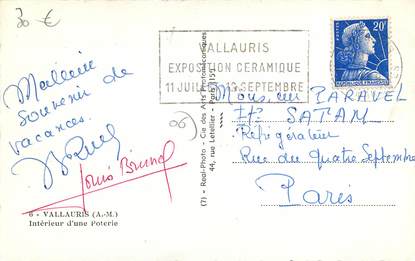 30 €
VALLAURIS
EXPOSITION CERAMIQUE
11 JUILLET 13 SEPTEMBRE
20F
Meilleur
souvenir de
vacances.
Louis Brunel
(06)
Monsieur PARAVEL
Ets SATAM
Réfrigération
Rue du Quatre Septembre
Paris
(7) - Real-Photo - Cie des Arts Photomécaniques
44, rue Letellier - Paris (15e)
6 - VALLAURIS (A.-M.)
Intérieur d'une Poterie